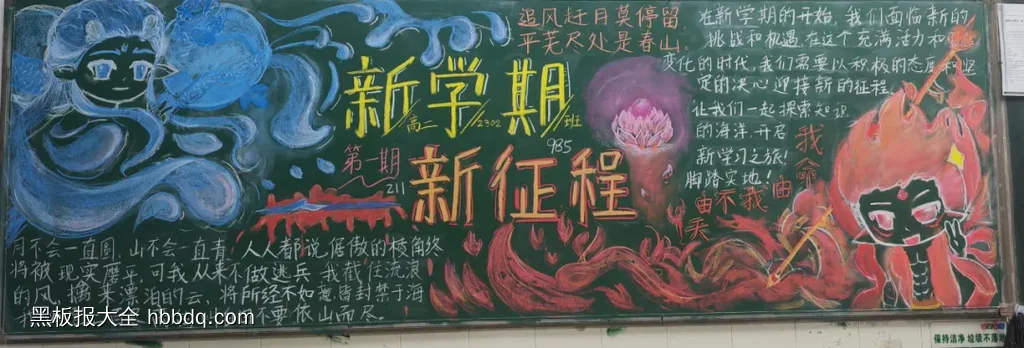 追风赶月莫停留
平芜尽处是春山
在新学期的开始,我们面临新的
挑战和机遇.在这个充满活力和
变化的时代,我们需要以积极的态度和坚
定的决心迎接新的征程.
让我们一起探索知识
的海洋.开启
新学习之旅!
脚踏实地!
新学期
高二 2302 班
新征程
985
第一期
211
我命
由我不
由天
月不会一直圆,山不会一直青,人人都说,倨傲的棱角终
将被现实磨平,可我从来不做逃兵 我截住流浪
的风,擒来漂泊的云,将所经不如意皆封禁于海
不要依山而尽.
黑板报大全 hbbdq.com
保持洁净 垃圾不落地